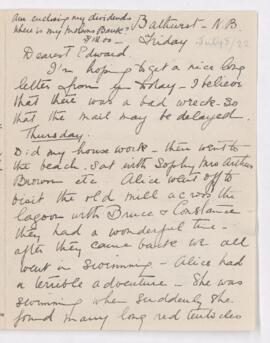 Am enclosing my dividends
Bathurst - N.B.
where is my Molsons Bank?
$18.00 -
Friday July 8/22
Dearest Edward.
I'm hoping to get a nice long
letter from you today - I believe
that there was a bad wreck. So
that the mail may be delayed.
Thursday.
Did my house work - then went to
the beach. Sat with Sophy, Mrs Arthur
Brown etc. Alice went off to
visit the old mill across the
lagoon with Bruce & Constance -
they had a wonderful time -
after they came back we all
went in swimming - Alice had
a terrible adventure - She was
swimming when suddenly she
found many long red tentacles